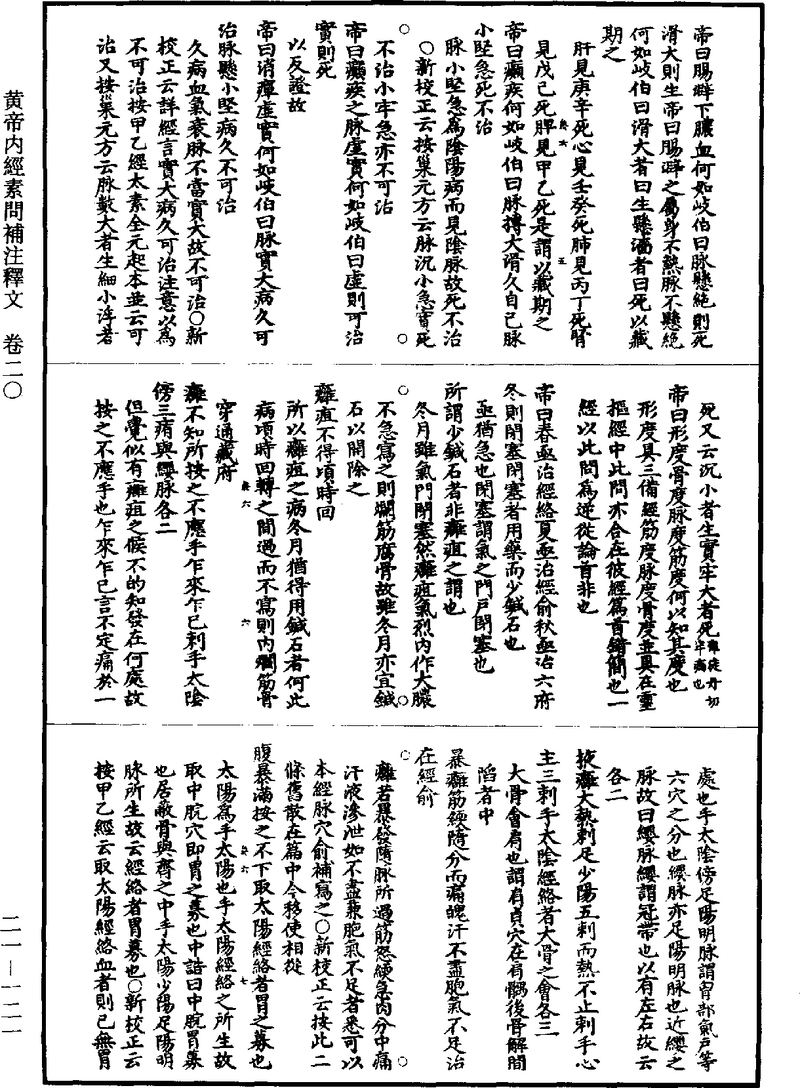 黄帝内經素問補注釋文　卷二〇
帝曰腸澼下膿血何如岐伯曰脉懸絶則死
滑大則生帝曰腸澼之屬身不熱脉不懸絶
何如岐伯曰滑大者曰生懸濇者曰死以藏
期之
肝見庚辛死心見壬癸死肺見丙丁死腎
見戊己死脾見甲乙死是謂以藏期之
帝曰癲疾何如岐伯曰脉搏大滑久自已脉
小堅急死不治
脉小堅急爲陰陽病而見陰脉故死不治
○新校正云按巢元方云脉沉小急實死
不治小牢急亦不可治
帝曰癲疾之脉虚實何如岐伯曰虚則可治
實則死
以反證故
帝曰消癉虚實何如岐伯曰脉實大病久可
治脉懸小堅病久不可治
久病血氣衰脉不當實大故不可治○新
校正云詳經言實大病久可治注意以爲
不可治按甲乙經太素全元起本並云可
治又按巢元方云脉數大者生細小浮者
死又云沉小者生實牢大者死
帝曰形度骨度脉度筋度何以知其度也
形度具三備經筋度脉度骨度並具在靈
樞經中此問亦合在彼經篇首錯簡也一
經以此問爲逆從論首非也
帝曰春亟治經絡夏亟治經俞秋亟治六府
冬則閉塞閉塞者用藥而少鍼石也
亟猶急也閉塞謂氣之門戸閉塞也
所謂少鍼石者非癰疽之謂也
冬月雖氣門閉塞然癰疽氣烈内作大膿
不急寫之則爛筋腐骨故雖冬月亦宜鍼
石以開除之
癰疽不得頃時回
所以癰疽之病冬月猶得用鍼石者何此
病頃時回轉之間過而不寫則内爛筋骨
穿通藏府
癰不知所按之不應手乍來乍已刺手太陰
傍三痏與纓脉各二
但覺似有癰疽之候不的知發在何處故
按之不應手也乍來乍已言不定痛於一
處也手太陰傍足陽明脉謂胷部氣戸等
六穴之分也纓脉亦足陽明脉也近纓之
脉故曰纓脉纓謂冠帶也以有左右故云
各二
掖癰大熱刺足少陽五刺而熱不止刺手心
主三刺手太陰經絡者大骨之會各三
大骨會肩也謂肩貞穴在肩髃後骨解間
陷者中
暴癰筋緛隨分而痛魄汗不盡胞氣不足治
在經俞
癰若暴發隨脉所過筋怒緛急肉分中痛
汗液滲泄如不盡兼胞氣不足者悉可以
本經脉穴俞補寫之○新校正云按此二
條舊散在篇中今移使相從
腹暴滿按之不下取太陽經絡者胃之募也
太陽爲手太陽也手太陽經絡之所生故
取中脘穴即胃之募也中誥曰中脘胃募
也居蔽骨與齊之中手太陽少陽足陽明
脉所生故云經絡者胃募也○新校正云
按甲乙經云取太陽經絡血者則已無胃
二一—一二一